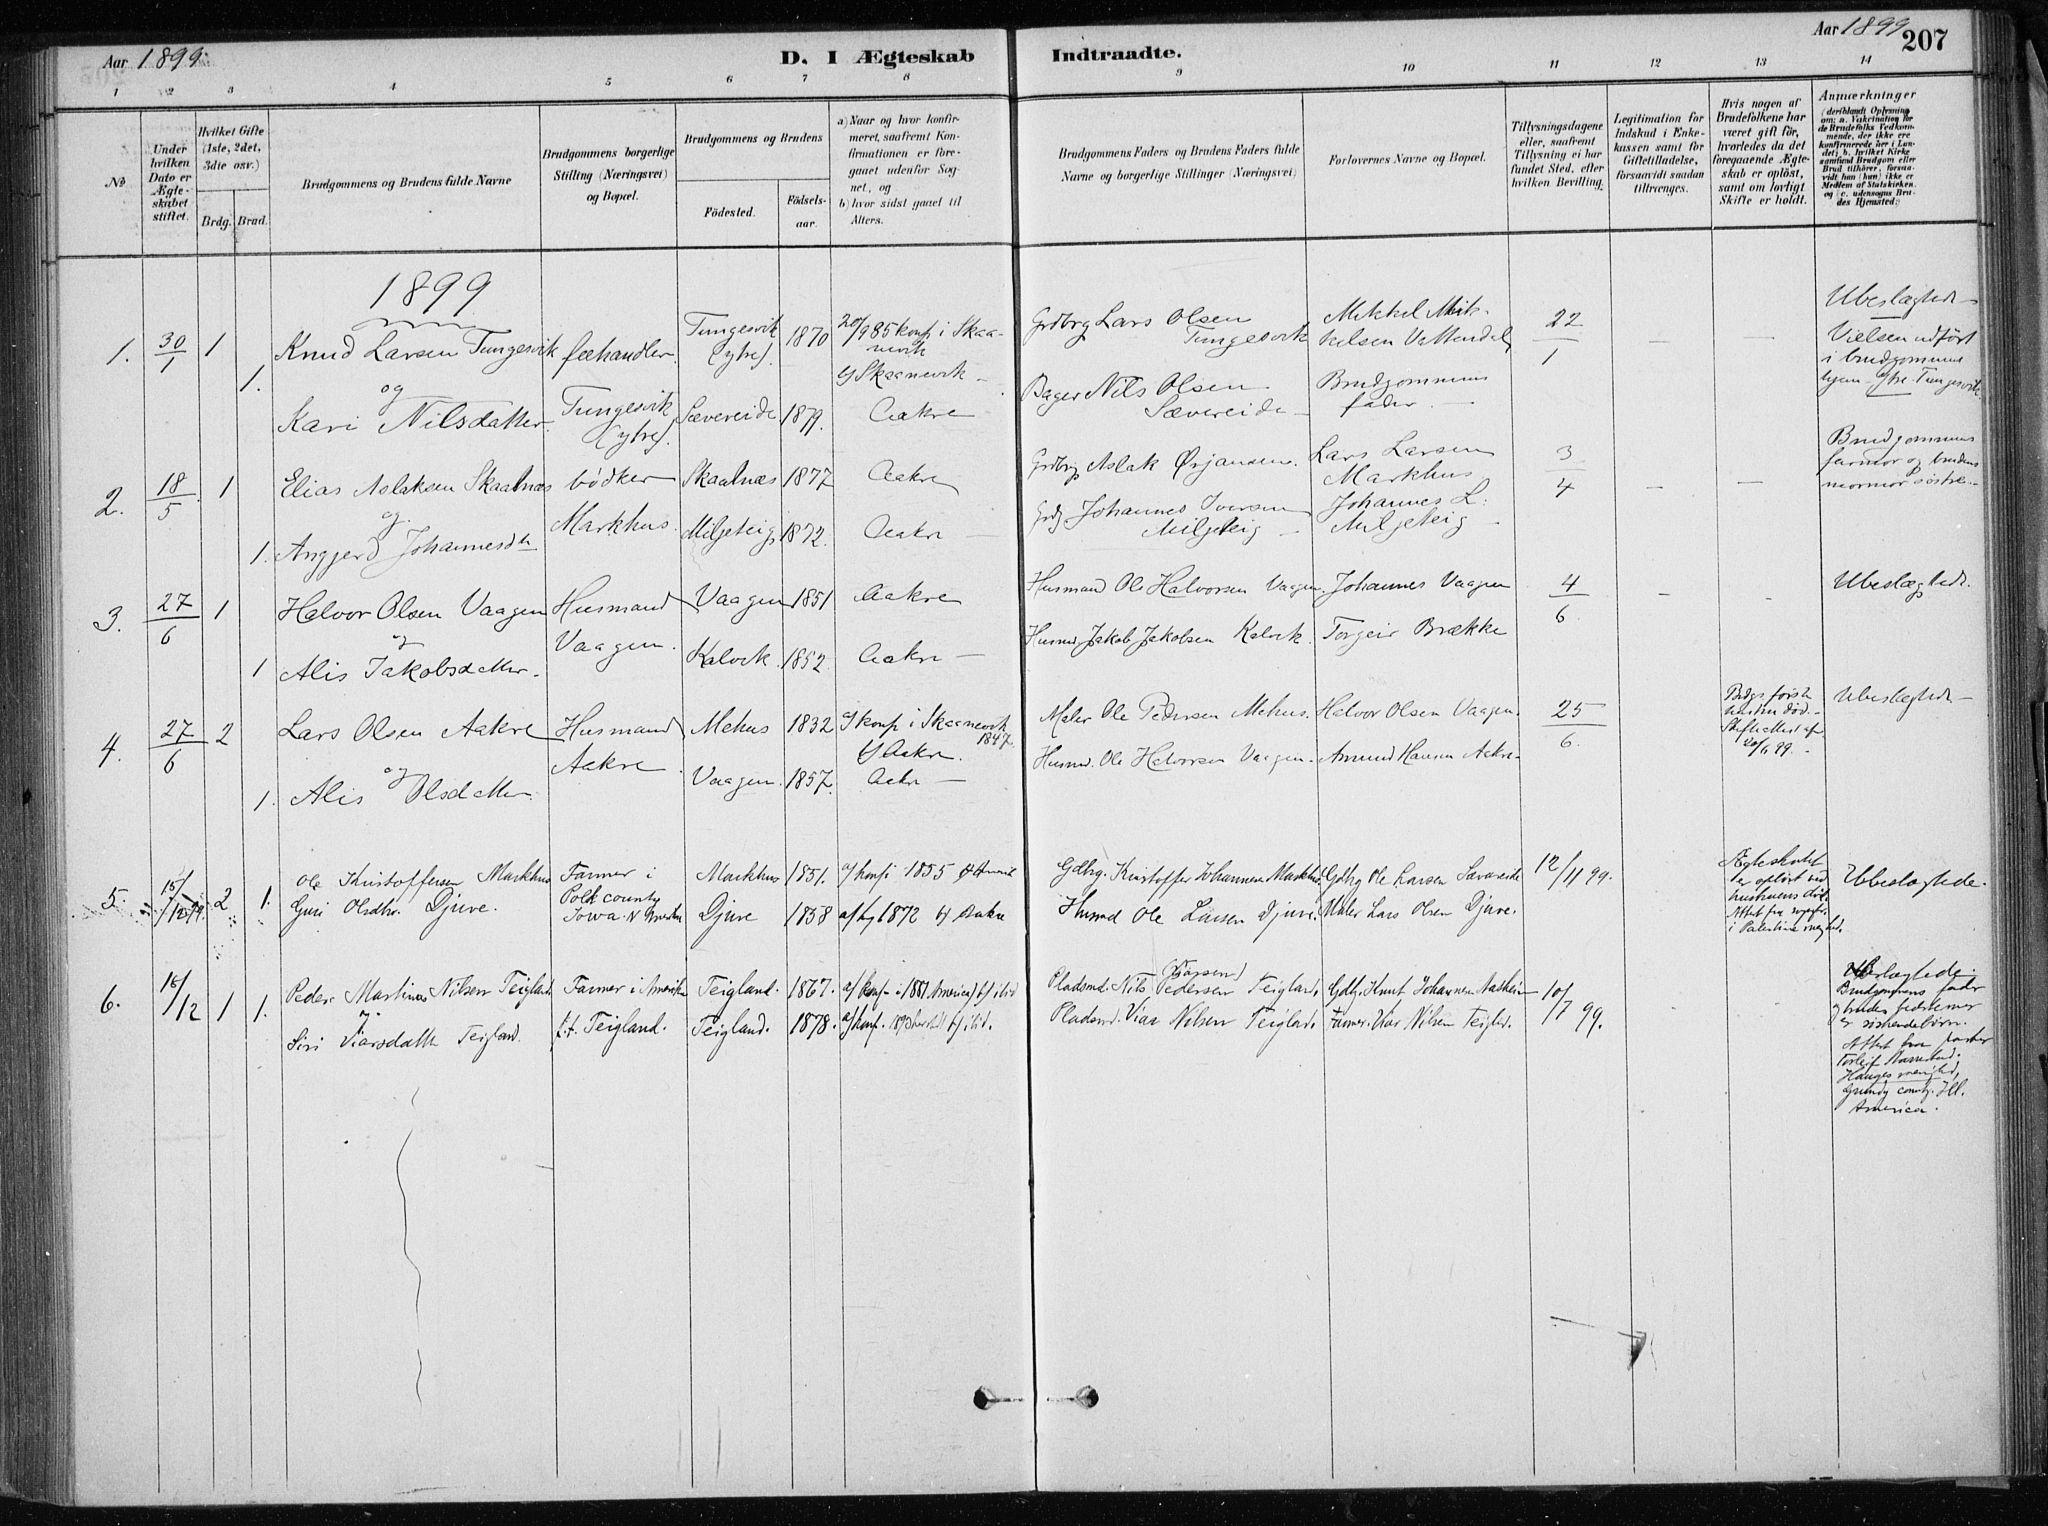 Aar 1899.
D. I Ægteskab
Indtraadte.
Aar 1899
207
1 2 3 4 5 6 7 8 9 10 11 12 13 14
No
Under hvilken Dato er Ægteskabet stiftet.
Hvilket Gifte (1ste, 2det, 3die osv.)
Brdg. Brud.
Brudgommens og Brudens fulde Navne
Brudgommens borgerlige Stilling (Næringsvei) og Bopæl.
Brudgommens og Brudens
Födested.
Födselsaar.
a) Naar og hvor konfirmeret, saafremt Konfirmationen er foregaaet udenfor Sognet, og
b) hvor sidst gaaet til Alters.
Brudgommens Faders og Brudens Faders fulde Navne og borgerlige Stillinger (Næringsvei)
Forlovernes Navne og Bopæl.
Tillysningsdagene eller, saafremt Tillysning ei har fundet Sted, efter hvilken Bevilling.
Legitimation for Indskud i Enkekassen samt for Giftetilladelse, forsaavidt saadan tiltrænges.
Hvis nogen af Brudefolkene har været gift för, hvorledes da det foregaaende Ægteskab er oplöst, samt om lovligt Skifte er holdt.
Anmærkninger
(deriblandt Oplysning om: a. Vakcination for de Brudefolks Vedkommende, der ikke ere konfirmerede her i Landet; b. hvilket Kirkesamfund Brudgom eller Brud tilhører, forsaavidt han (hun) ikke er Medlem af Statskirken, og c. udensogns Brudes Hjemsted.)
1899
1. 30/1 1 Knud Larsen Tungesvik fæhandler. Tungesvik (ytre). 1870 20/9 85 konf i Skaanevik
b) Skaanevik - Grdbrg Lars Olsen Tungesvik Mikkel Mikkelsen Vattendal 22/1 - - Ubeslægtede -
Vielsen udført i brudgommens hjem - Ytre Tungesvik
og
1. Kari Nilsdatter. Tungesvik (ytre). Sævereide 1879. Aakre Bager Nils Olsen Sævereide - Brudgommens fader. -
2. 18/5 1 Elias Aslaksen Skaalnæs bödker Skaalnæs 1877 Aakre Grdbrg Aslak Ørjansen. Lars Larsen Markhus 3/4 - - Brudgommens farmor og brudens mormor söstre. -
og
1. Anggjerd Johannesdtr Markhus. Miljeteig 1872. Aakre - Grdbg Johannes Iversen Miljeteig - Johannes L: Miljeteig -
3. 27/6 1 Halvor Olsen Vaagen Husmand Vaagen 1851 Aakre Husmand Ole Halvorsen Vaagen. Johannes Vaagen 4/6 - - Ubeslægtede.
og
1 Alis Jakobsdatter. Vaagen. Kalvik 1852. Aakre - Husmd Jakob Jakobsen Kalvik. Torgeir Brække
4. 27/6 2 Lars Olsen Aakre Husmand Mehus 1832 a) konf i Skaanevik 1847.
b) Aakre. Maler Ole Pedersen Mehus. Halvor Olsen Vaagen. 25/6. Brdgs förste hustru död. - Skifteattest af 20/6 99. - Ubeslægtede -
og
1. Alis Olsdatter. Aakre. Vaagen. 1857. Aakre - Husmd. Ole Halvorsen Vaagen - Amund Hansen Aakre -
5. 15/12 99. 2 1. Ole Kristoffersen Markhus Farmer i Markhus 1831. a) konf 1855 b) Amerik Gdbrg. Kristoffer Johannesen Markhus. Gdbrg Ole Larsen Sævereide 12/11 99. Ægteskabet er oplöst ved hustruens död. Attest fra i Palestine meghd. Ubeslægtede.
Guri Olsdtr. Djuve. Polk county Iowa. N Amerika Djuve 1858 1872 b) Aakre Husmd Ole Larsen Djuve. Maler Lars Olsen Djuve.
6. 15/12 1 1. Peder Martinus Nilsen Teigland Farmer i Amerika Teigland. 1867. a) konf. 1881 America b) ibid Pladsmd. Nils Pedersen Teigland. Gdbg. Knut Johannesen 10/7 99. Beslægtede. Brudgommens fader og brudens er söskendebörn.
Attest fra pastor Torleif Hauges menighed, Grundy county. Ill. America.
og
Siri Viarsdatter Teigland. t.t. Teigland. Teigland. 1878. a) konf. b) ibid. Pladsmd. Viar Nilsen Teigland. Farmer. Viar Nilsen Teigld.